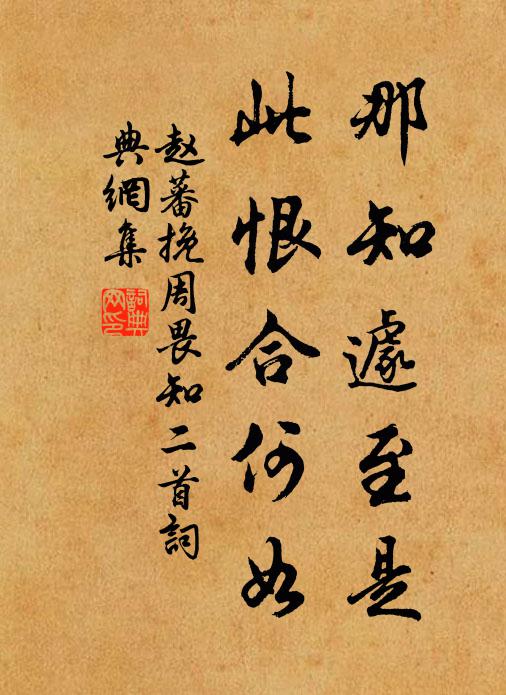 那知遽至是
此恨合何如
赵蕃挽周畏知二首詞
典網集
詞典
网印